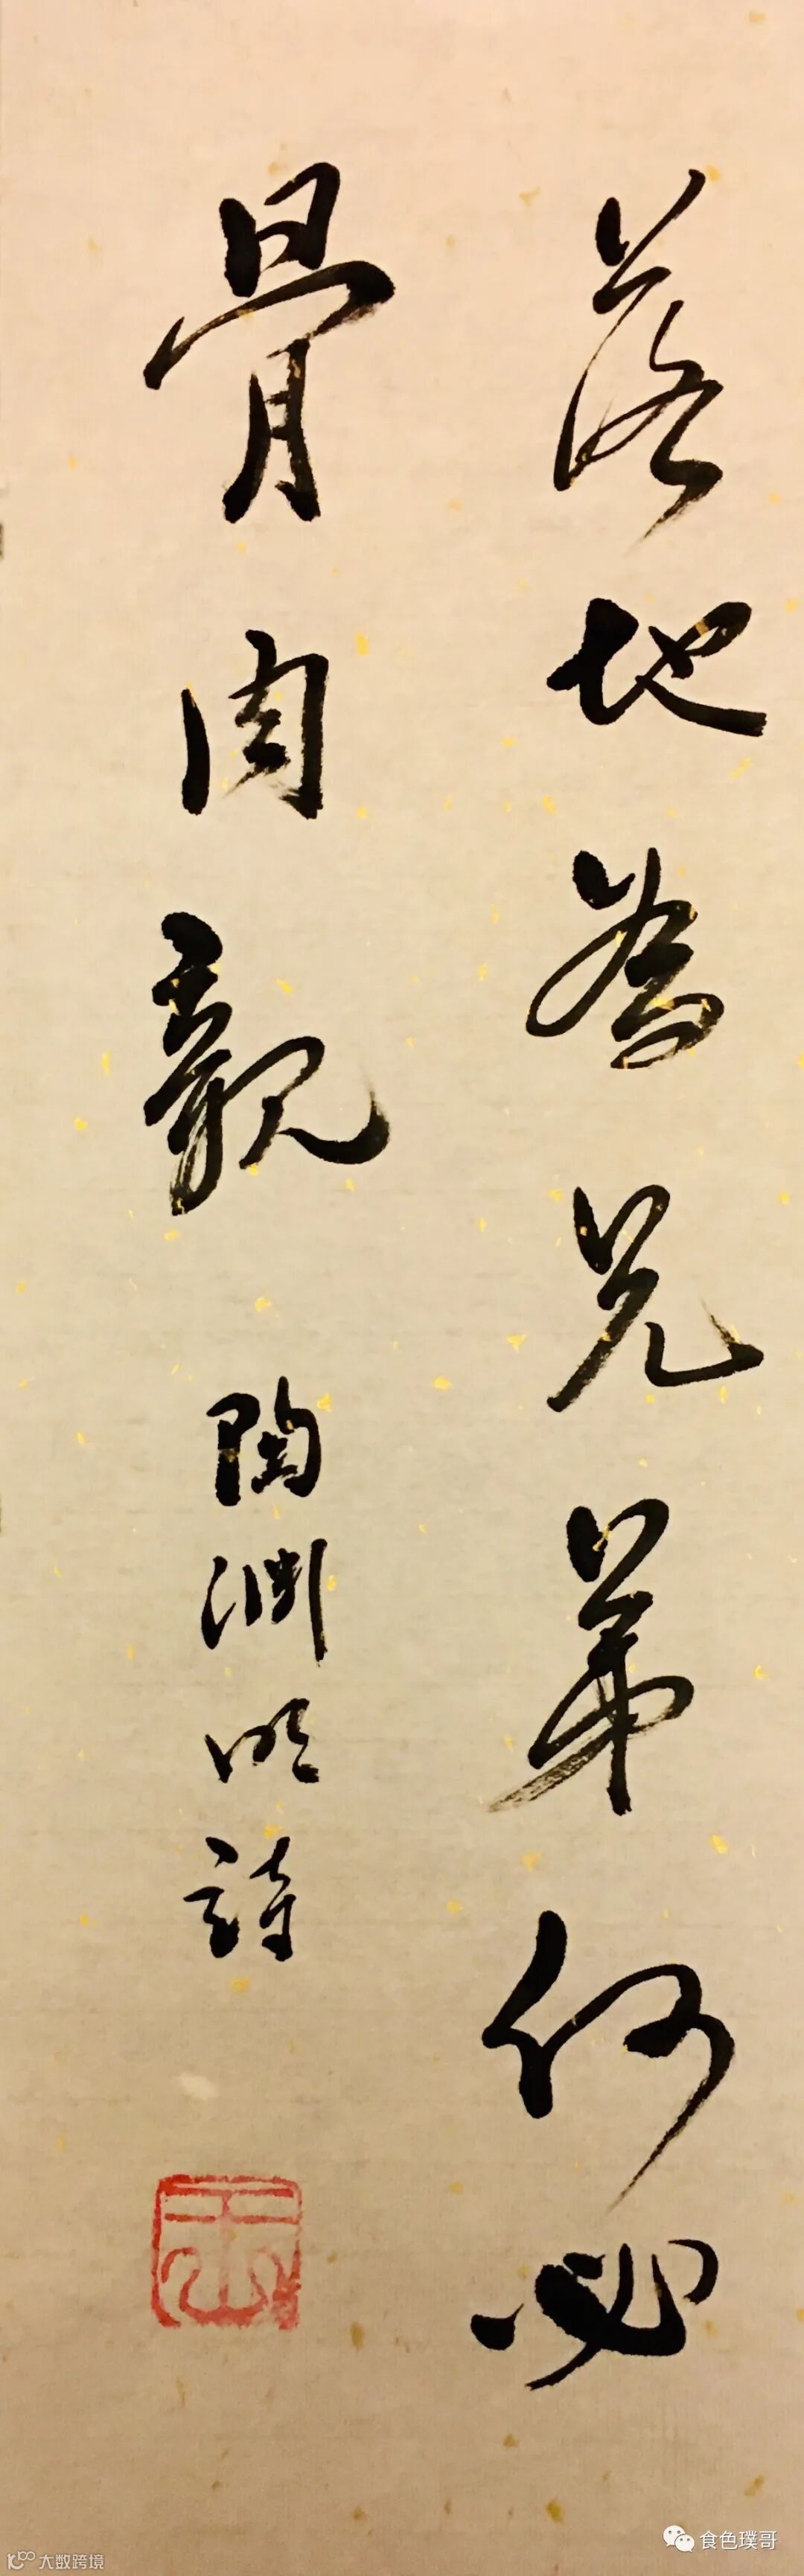 落地為兄弟何必
骨肉親
陶淵明詩
食色璞哥
大数跨境